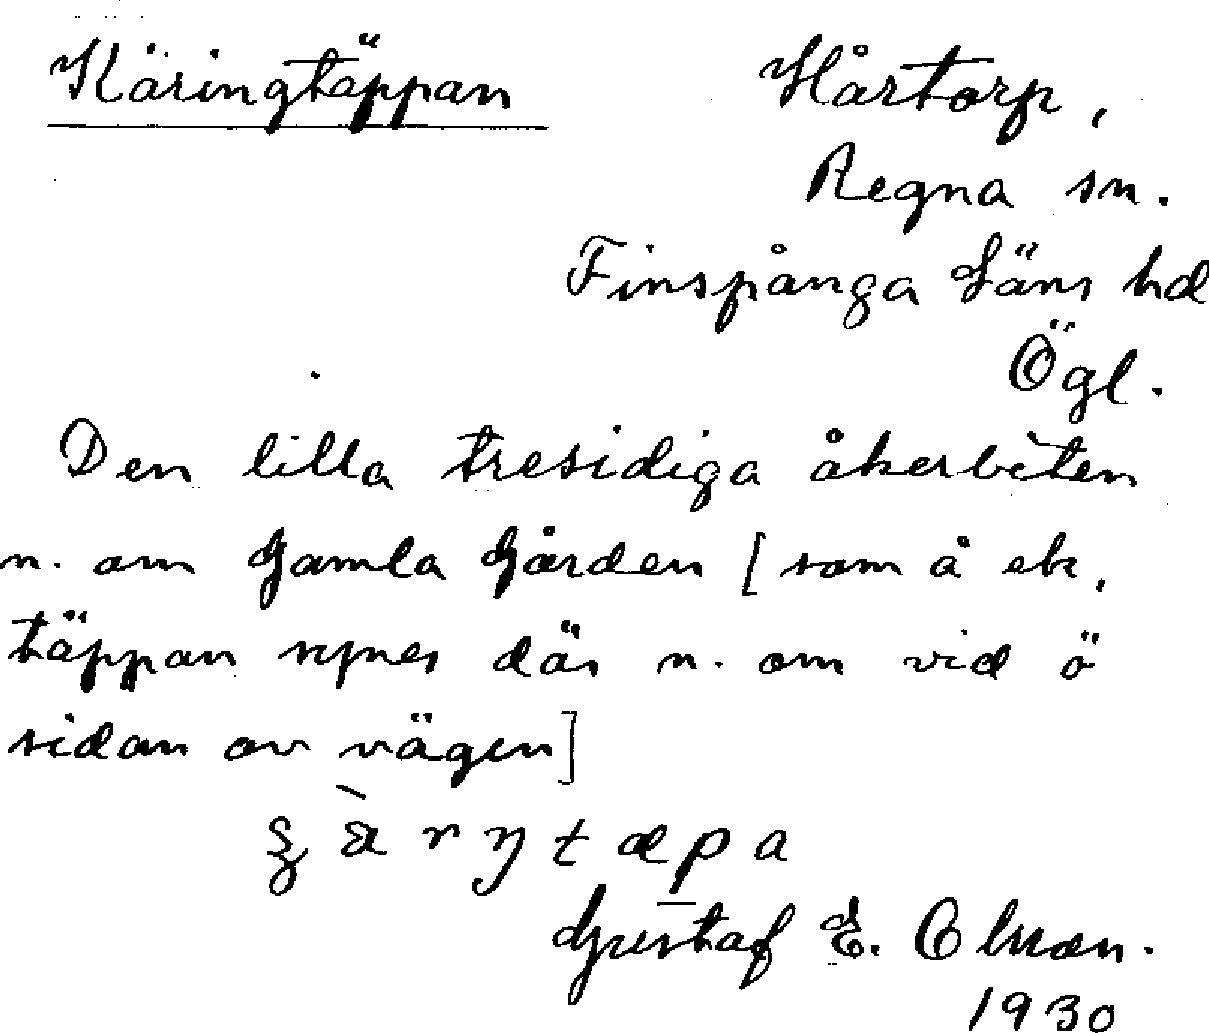 Käringtäppan
Hårtorp,
Regna sn.
Finspånga Läns hd
Ögl.
Den lilla tresidiga åkerbiten
n. om Gamla Gården [som å ek.
täppan synes där n. om vid ö
sidan av vägen]
Gustaf E. Olsson.
1930